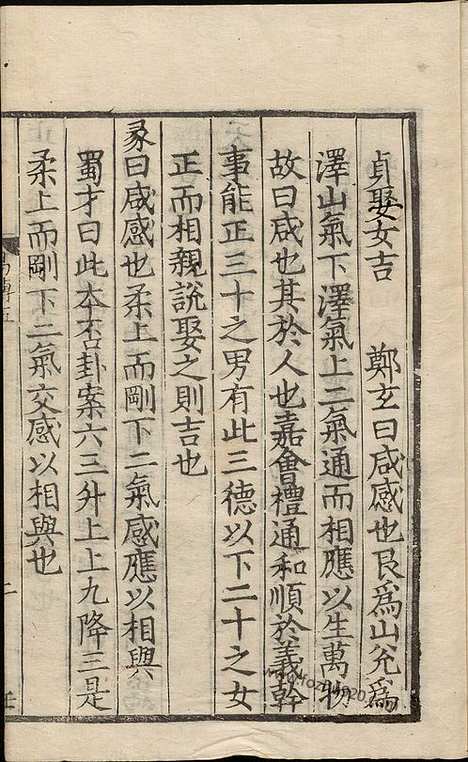 貞娶女吉　鄭玄曰咸感也艮為山兊為
澤山氣下澤氣上二氣通而相應以生萬物
故曰咸也其於人也嘉會禮通和順於義幹
事能正三十之男有此三德以下二十之女
正而相親說娶之則吉也
彖曰咸感也柔上而剛下二氣感應以相與
蜀才曰此本否卦案六三升上上九降三是
柔上而剛下二氣交感以相與也
易傳五
二